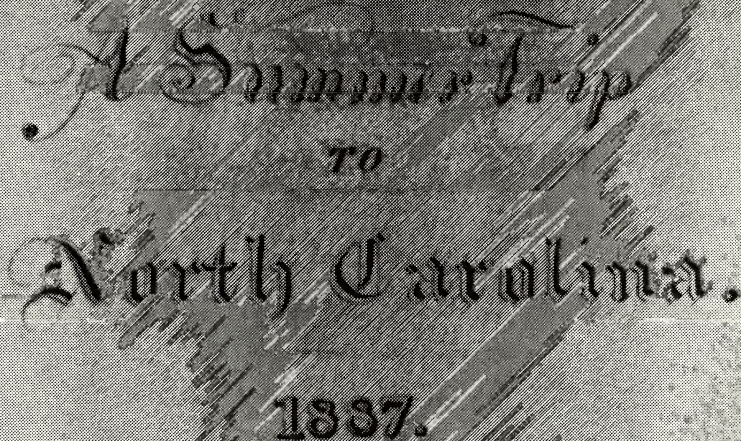 A Summer Trip
TO
North Carolina.
1887.